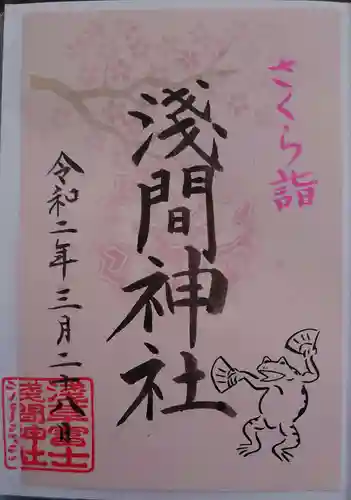 さくら詣
淺間神社
令和二年三月二十八日
浅草富士
浅間神社